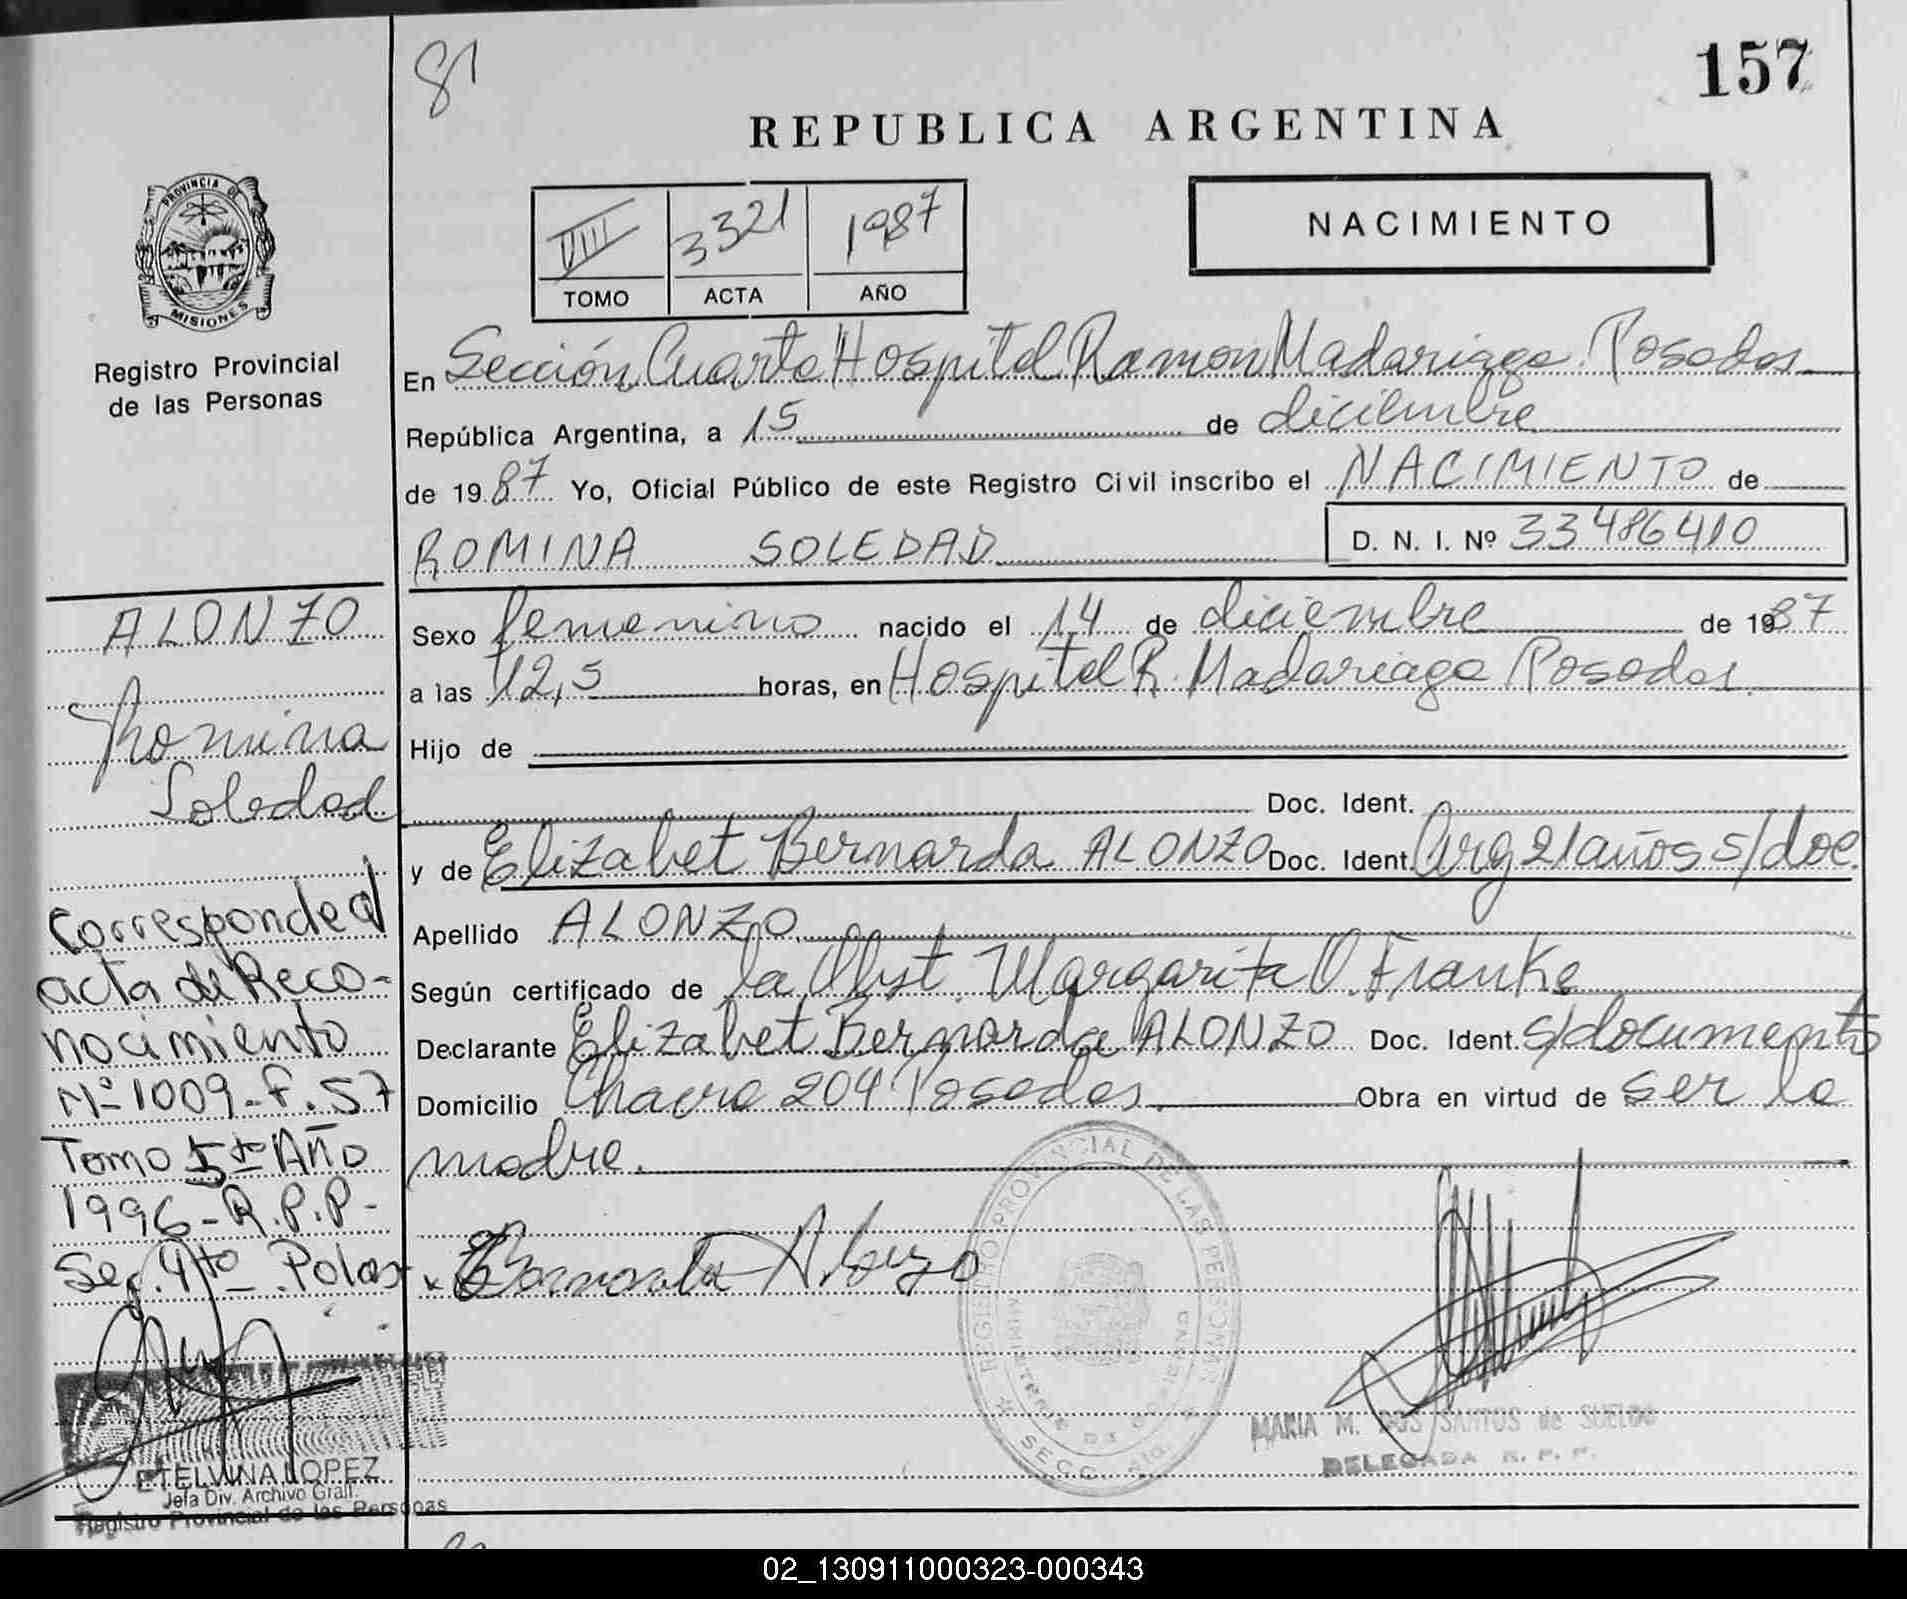 81
157
REPUBLICA ARGENTINA
VIII 3321 1987
TOMO ACTA AÑO
NACIMIENTO
PROVINCIA DE
MISIONES
Registro Provincial
de las Personas
En Sección Cuarta Hospital Ramon Madariaga. Posadas
República Argentina, a 15 de diciembre
de 1987 Yo, Oficial Público de este Registro Civil inscribo el NACIMIENTO de
ROMINA SOLEDAD D. N. I. Nº 33486410
Sexo femenino nacido el 14 de diciembre de 1987
a las 12,5 horas, en Hospital R. Madariaga Posadas.
Hijo de
Doc. Ident.
y de Elizabet Bernarda ALONZO Doc. Ident. Arg 21 años s/doc.
Apellido ALONZO
Según certificado de la Obst. Margarita O. Franke
Declarante Elizabet Bernarda ALONZO Doc. Ident. s/documento
Domicilio 204 Posadas. Obra en virtud de ser la
madre.
ALONZO
Romina
Soledad
Corresponde al
acta de Reco-
nocimiento
Nº 1009-F.57
Tomo 5to Año
1996-R.P.P-
Sec. 4to Pdas
Bernarda Alonzo
REGISTRO PROVINCIAL DE LAS PERSONAS
MINISTERIO DE GOBIERNO
SECC. 4ta.
MARIA M. DOS SANTOS de SUELDO
DELEGADA R. P. P.
ETELVINA LOPEZ
Jefa Div. Archivo Gral.
Registro Provincial de las Personas
02_130911000323-000343